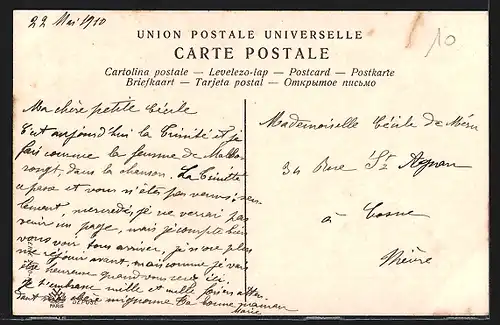 22 Mai 1910
10
UNION POSTALE UNIVERSELLE
CARTE POSTALE
Cartolina postale — Levelezo-lap — Postcard — Postkarte
Briefkaart — Tarjeta postal — Открытое письмо
Ma chère petite Cécile
C'est aujourd'hui la Trinité et je
fais comme la femme de Malbo-
rough, dans la chanson. La Trinité
a passé et vous n'êtes pas venus, seu-
lement, mercredi, je ne verrai pas
venir un page, mais je compte bien
vous voir tous arriver, je n'ose plus
me réjouir avant, mais comme je vais
être heureuse quand vous serez ici.
Je t'embrasse mille et mille fois en atten-
dant ma chère mignonne Ta bonne maman
Marie
Mademoiselle Cécile de
34 Rue St Agnan
à Cosne
Nièvre
PARIS
DÉPOSÉ